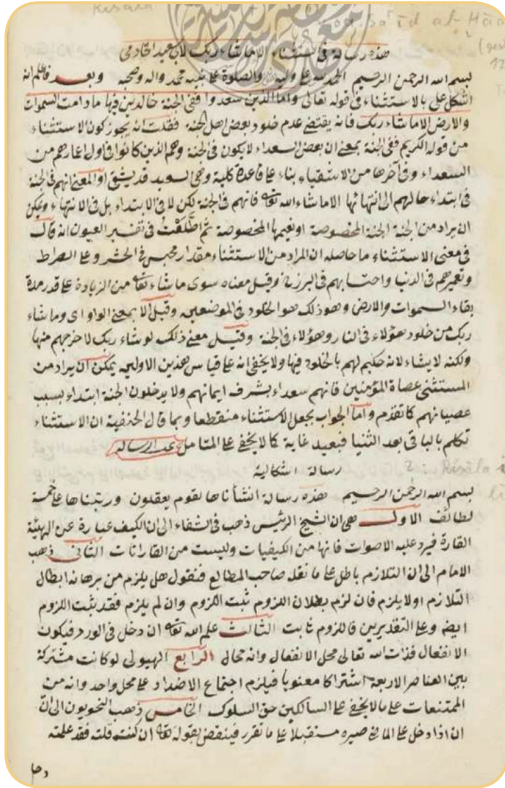 هذه رسالة في الاستثناء الا ما شاء ربك لابي سعيد الخادمي
بسم الله الرحمن الرحيم الحمد لله على وليه والصلوة على نبيه محمد وآله وصحبه وبعد فاعلم انه
اشكل علي بالاستثناء في قوله تعالى واما الذين سعدوا ففي الجنة خالدين فيها ما دامت السموات
والارض الا ما شاء ربك فانه يقتضي عدم خلود بعض اهل الجنة فقلت انه يجوز كون الاستثناء
من قوله الكريم ففي الجنة بمعنى ان بعض السعداء لا يكون في الجنة وهم الذين كانوا في اول اعمارهم من
السعداء وفي آخرها من الاشقياء بناء على قاعدة كلية وهي السعيد قد يشقى او المعنى انهم في الجنة
في ابتداء حالهم الى انتهائها الا ما شاء الله تعالى فانهم في الجنة لكن لا في الابتداء بل في الانتهاء ويمكن
ان يراد من الجنة الجنة المخصوصة ونعيمها المخصوصة ثم اطلعت في تفسير العيون انه قال
في معنى الاستثناء ما حاصله ان المراد من الاستثناء مقدار محبس في الحشر وعلى الصراط
وتعميرهم في الدنيا واحتسابهم في البرزخ وقيل معناه سوى ما شاء تعالى من الزيادة على قدر مدة
بقاء السموات والارض وهو ذلك هو الخلود في الموضعين وقيل الا بمعنى الواو اي وما شاء
ربك من خلود هؤلاء في النار وهؤلاء في الجنة وقيل معنى ذلك لو شاء ربك لاخرجهم منها
ولكنه لا يشاء لانه حكم لهم بالخلود فيها ولا يخفى انه على قياس هذين الاولين يمكن ان يراد من
المستثنى عصاة المؤمنين فانهم سعداء بشرف ايمانهم ولا يدخلون الجنة ابتداء بسبب
عصيانهم كما تقدم واما الجواب بجعل الاستثناء منقطعا وبما قال الحنفية ان الاستثناء
تكلم بالباقي بعد الثنيا فبعيد غاية كما لا يخفى على المتامل الرسالة
رسالة اشكالية
بسم الله الرحمن الرحيم هذه رسالة انشأناها لقوم يعقلون ورتبناها على خمسة
لطائف الاولى هي ان الشيخ الرئيس ذهب في الشفاء الى ان الكيف عبارة عن الهيئة
القارة فيرد عليه الاصوات فانها من الكيفيات وليست من القارات الثاني ذهب
الامام الى ان التلازم باطل على ما نقله صاحب المطالع فنقول هل يلزم من برهانه ابطال
التلازم او لا يلزم فان لزم بطلان اللزوم ثبت اللزوم وان لم يلزم فقد يثبت اللزوم
ايضا وعلى التقديرين فاللزوم ثابت الثالث علم الله تعالى ان دخل في الورد فيكون
الانفعال فذات الله تعالى محل الانفعال وانه محال الرابع الهيولى لو كانت مشتركة
بين العناصر الاربعة اشتراكا معنويا فيلزم اجتماع الاضداد على محل واحد وانه من
الممتنعات على ما لا يخفى على السالكين حق السلوك الخامس ذهب النحويون الى ان
ان اذا دخل على الماضي صيره مستقبلا على ما تقرر فينقض بقوله تعالى ان كنت قلته فقد علمته